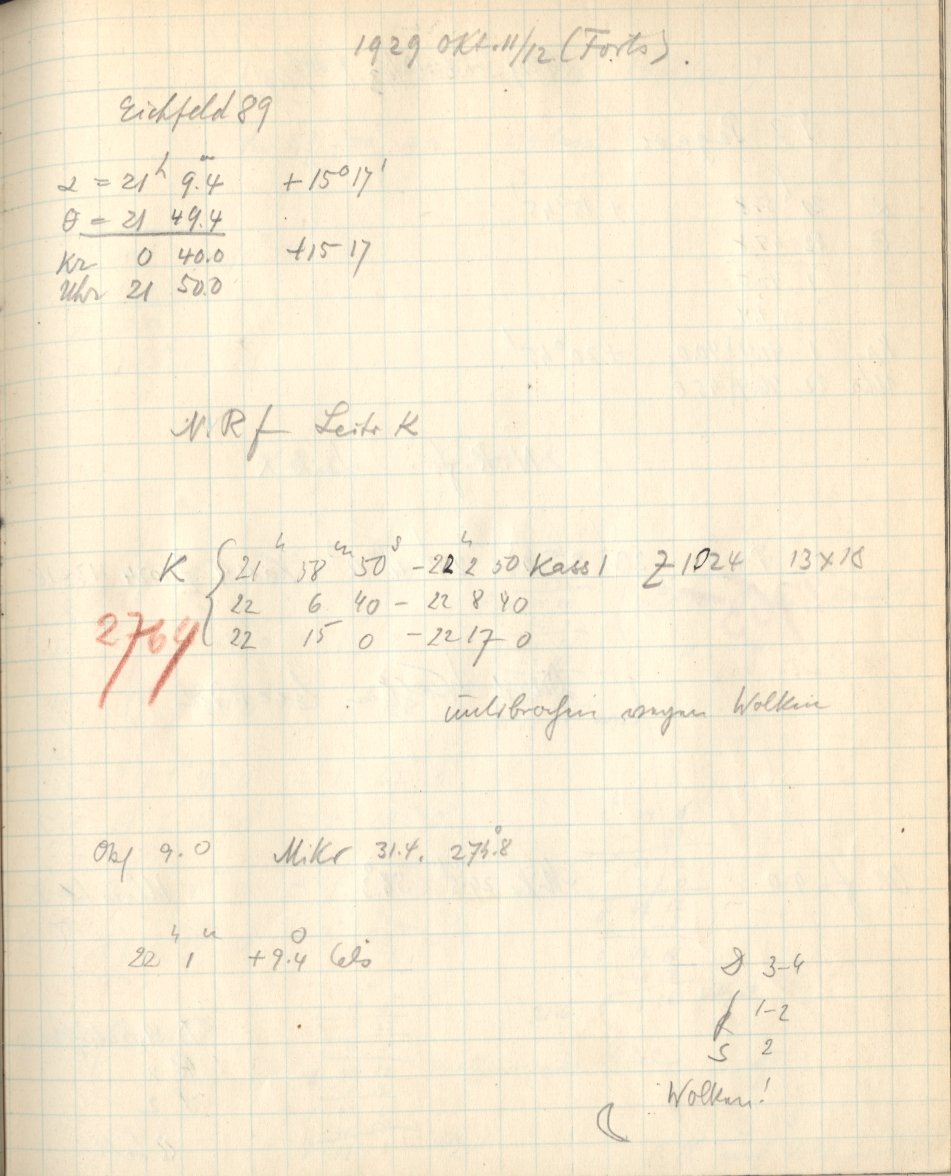 1929 Okt. 11/12 (Forts).
Eichfeld 89
α = 21h 9.m4 +15° 17'
θ = 21 49.4
Kr 0 40.0 +15 17
Uhr 21 50.0
N. R f Leitr K
K 21h 58m 50s – 22h 2 50 Kass 1 Z 1024 13×18
22 6 40 – 22 8 40
2764 22 15 0 – 22 17 0
unterbrochen wegen Wolken
Obj 9.0 Mikr 31.4.
22h 1m +9.°4 Cels
3–4
1–2
S 2
Wolken!